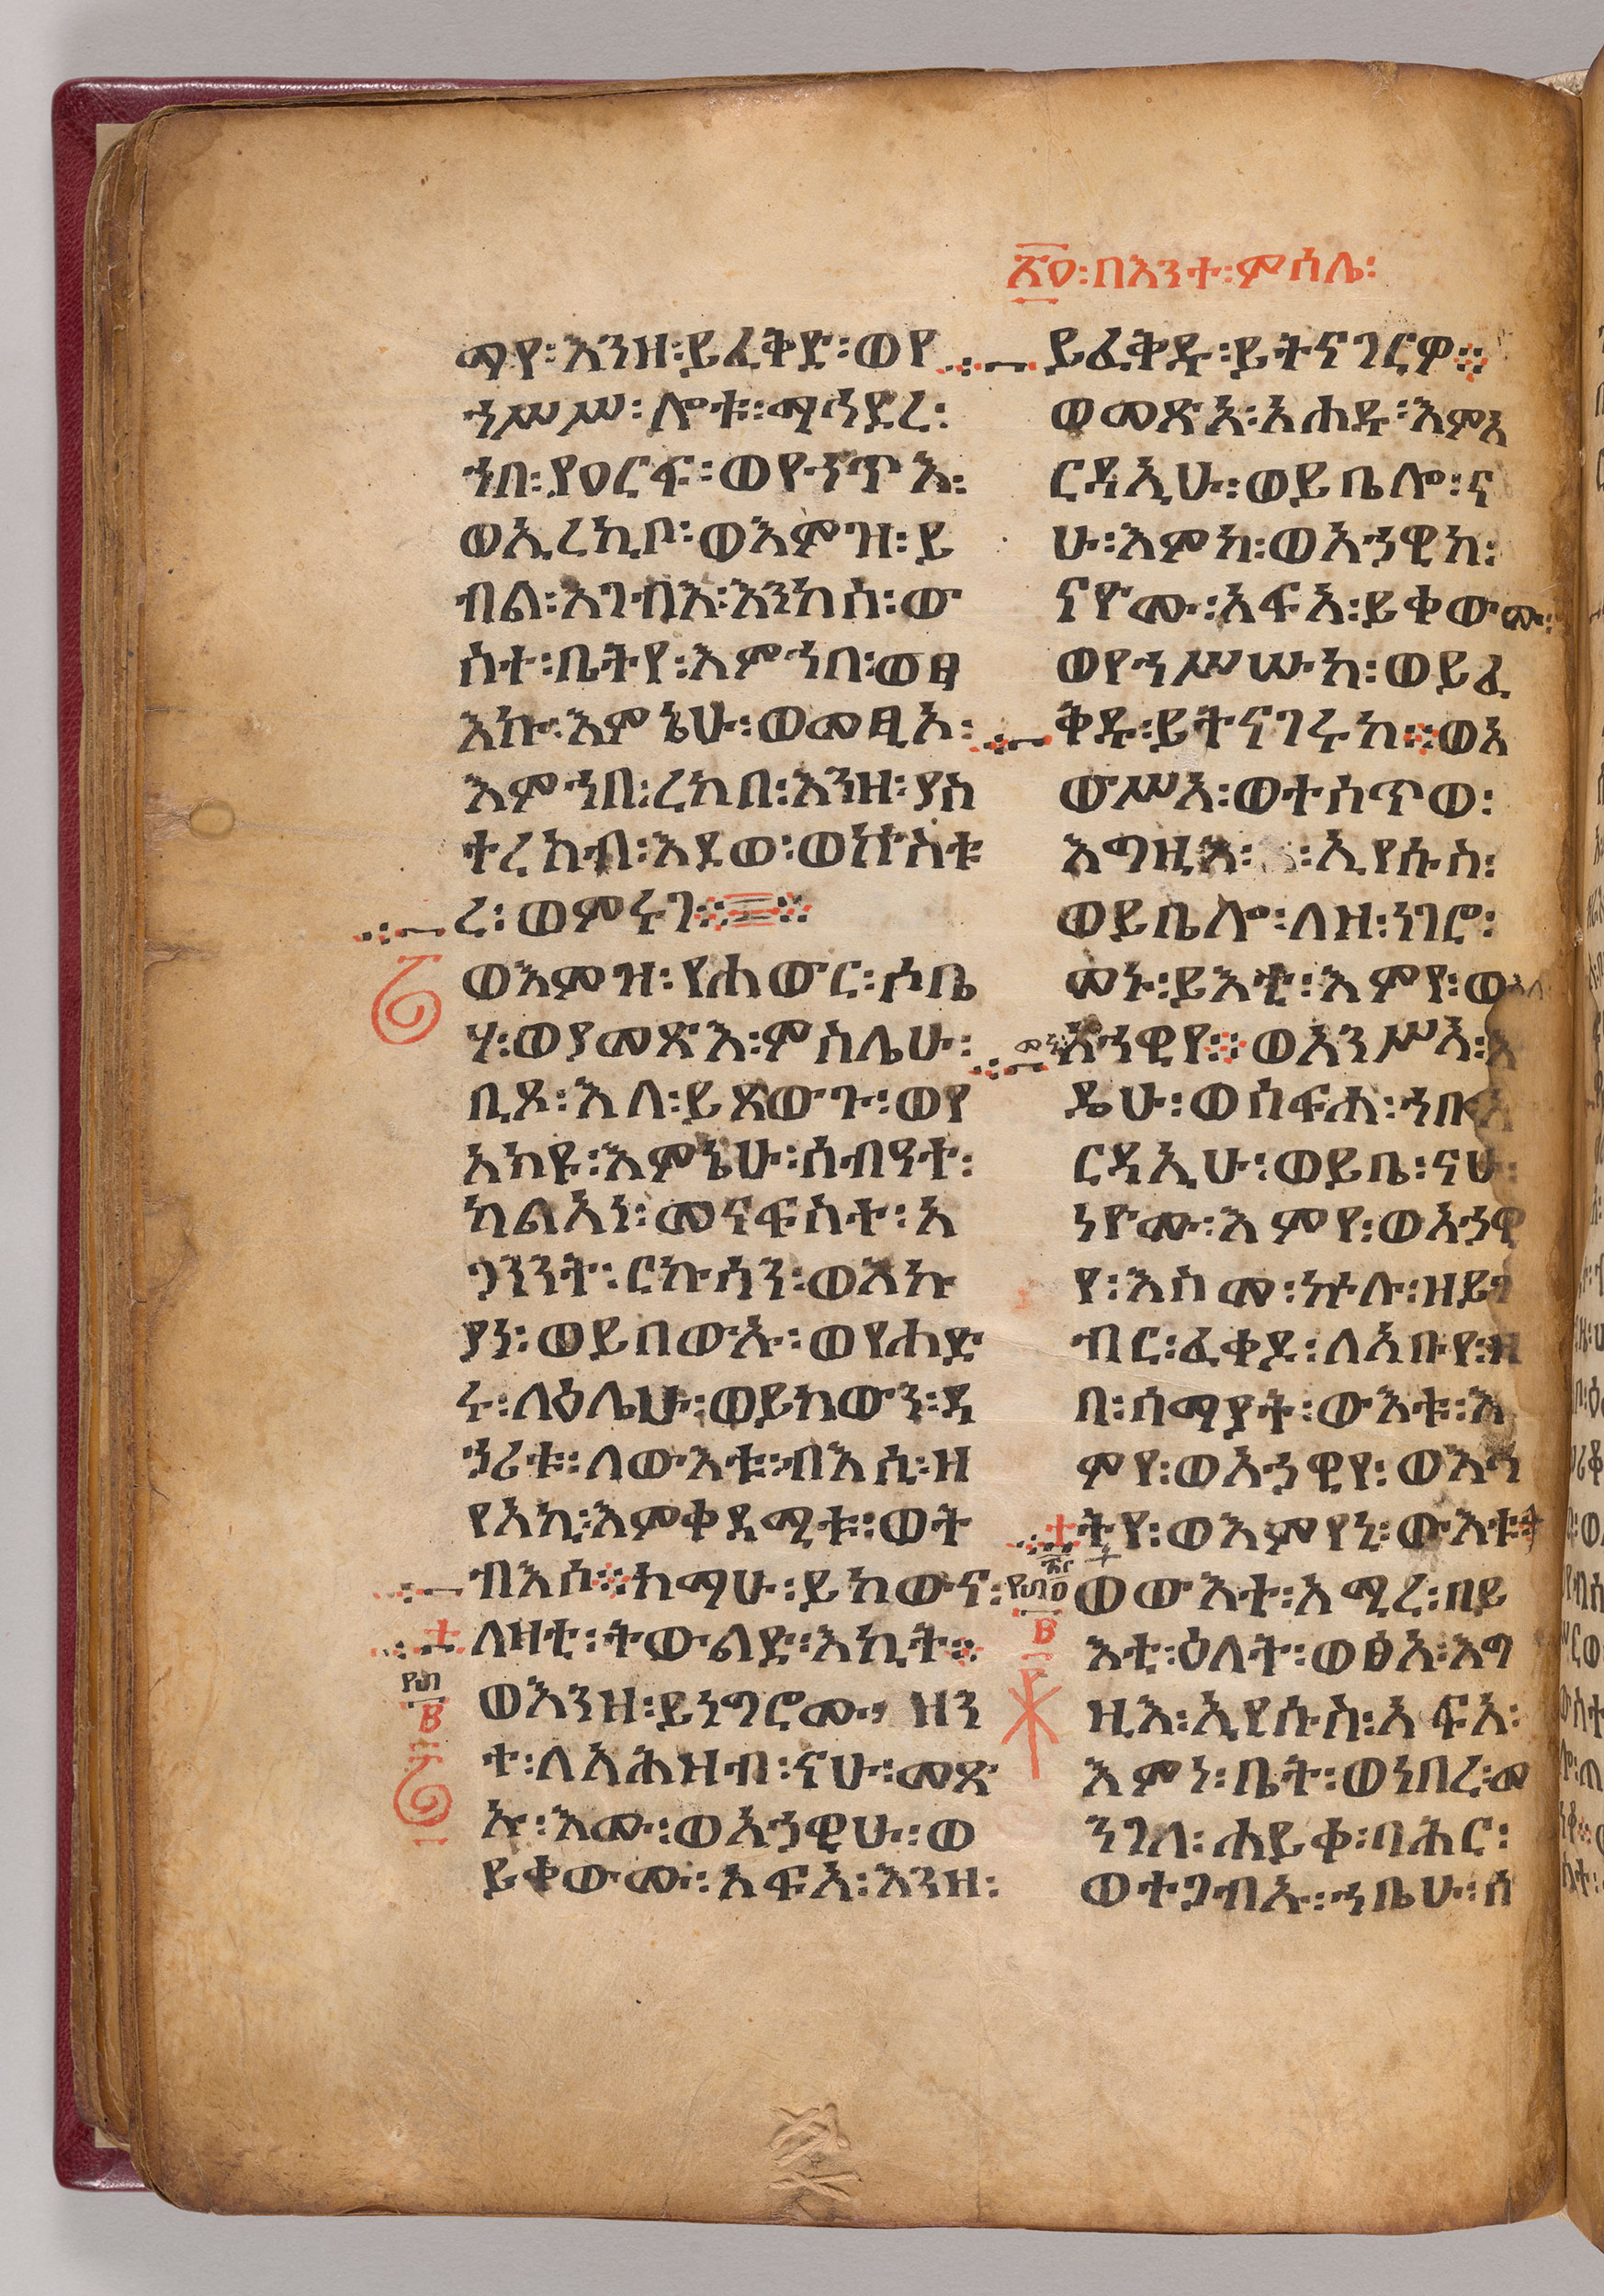 ፳ወ፡በእንተ፡ምሳሌ፡
ማየ፡እንዘ፡ይፈቅድ፡ወየ
ኀሥሥ፡ሎቱ፡ማኅደረ፡
ኀበ፡ያዐርፍ፡ወየኀጥእ፡
ወኢረኪቦ፡ወእምዝ፡ይ
ብል፡እገብእ፡እንከሰ፡ው
ስተ፡ቤትየ፡እምኀበ፡ወፃ
እኩ፡እምኔሁ፡ወመፂኦ፡
እምኀበ፡ረከበ፡እንዘ፡ያስ
ተረክብ፡እደወ፡ወኵስቱ
ረ፡ወምሩገ፨
ወእምዝ፡የሐውር፡ሶቤ
ሃ፡ወያመጽእ፡ምስሌሁ፡
ቢጾ፡እለ፡ይጸውጉ፡ወየ
አክዩ፡እምኔሁ፡ሰብዓተ፡
ካልአነ፡መናፍስተ፡አ
ጋንንት፡ርኩሳን፡ወእኩ
ያነ፡ወይበውኡ፡ወየሐድ
ሩ፡ላዕሌሁ፡ወይከውን፡ደ
ኃሪቱ፡ለውእቱ፡ብእሲ፡ዘ
የአኪ፡እምቀዳሚቱ፡ወት
ብእሶ፨ከማሁ፡ይከውና፡
ለዛቲ፡ትውልድ፡እኪት፨
ወእንዘ፡ይነግሮሙ፡ዘን
ተ፡ለአሕዛብ፡ናሁ፡መጽ
ኡ፡እሙ፡ወአኃዊሁ፡ወ
ይቀውሙ፡አፍአ፡እንዘ፡
ይፈቅዱ፡ይትናገርዎ፨
ወመጽአ፡አሐዱ፡እምአ
ርዳኢሁ፡ወይቤሎ፡ና
ሁ፡እምከ፡ወአኃዊከ፡
ናዮሙ፡አፍአ፡ይቀውሙ፡
ወየኀሥሡከ፡ወይፈ
ቅዱ፡ይትናገሩከ፨ወአ
ውሥአ፡ወተሰጥወ፡
እግዚእ፡ኢየሱስ፡
ወይቤሎ፡ለዘ፡ነገሮ፡
መኑ፡ይእቲ፡እምየ፡ወእለ
መኑ፡አኃዊየ፨ወአንሥአ፡እ
ዴሁ፡ወሰፍሐ፡ኀበ፡አ
ርዳኢሁ፡ወይቤ፡ናሁ፡
ነዮሙ፡እምየ፡ወአኃዊ
የ፡እስመ፡ኵሉ፡ዘይገ
ብር፡ፈቃዶ፡ለአቡየ፡ዘ
በ፡ሰማያት፡ውእቱ፡እ
ምየ፡ወአኃዊየ፡ወእኅ
ትየ፡ወእምየኒ፡ውእቱ፡
ወውእተ፡አሚረ፡በይ
እቲ፡ዕለት፡ወፅአ፡እግ
ዚእ፡ኢየሱስ፡አፍአ፡
እምነ፡ቤት፡ወነበረ፡መ
ንገለ፡ሐይቀ፡ባሕር፡
ወተጋብኡ፡ኀቤሁ፡ሰ